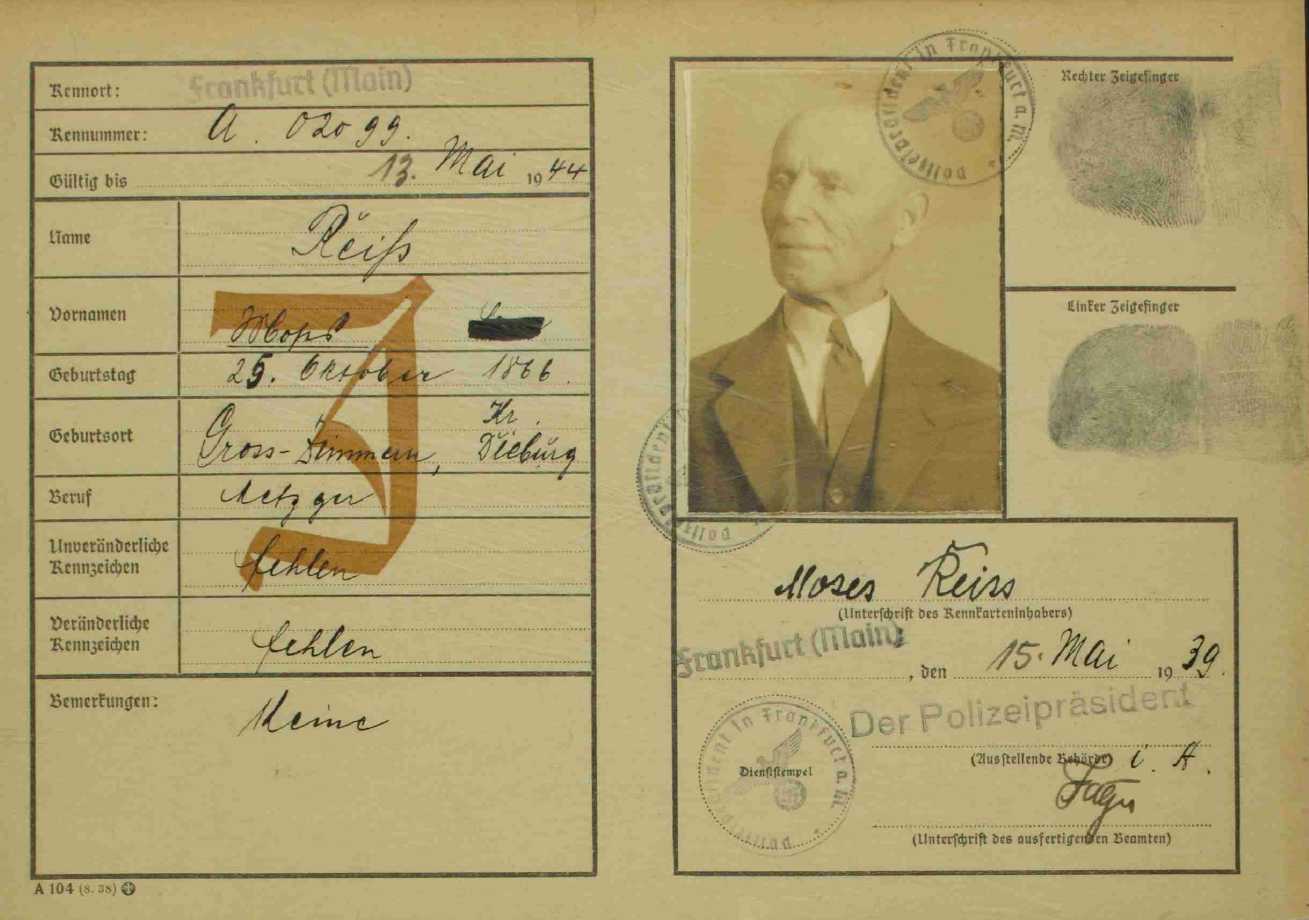 Kennort: Frankfurt (Main)
Kennummer: A. 02099.
Gültig bis 13. Mai 1944
Name Reiß
Vornamen Moses
Geburtstag 25. Oktober 1866.
Geburtsort Gross-Zimmern, Kr. Dieburg
Beruf Metzger
Unveränderliche Kennzeichen fehlen
Veränderliche Kennzeichen fehlen
Bemerkungen: Keine
J
A 104 (8. 38)
Polizeipräsident in Frankfurt a. M.
Rechter Zeigefinger
Linker Zeigefinger
Polizeipräsident
Moses Reiss
(Unterschrift des Kennkarteninhabers)
Frankfurt (Main), den 15. Mai 1939.
Der Polizeipräsident
(Ausstellende Behörde) i. A.
Polizeipräsident in Frankfurt a. M.
Dienststempel
(Unterschrift des ausfertigenden Beamten)